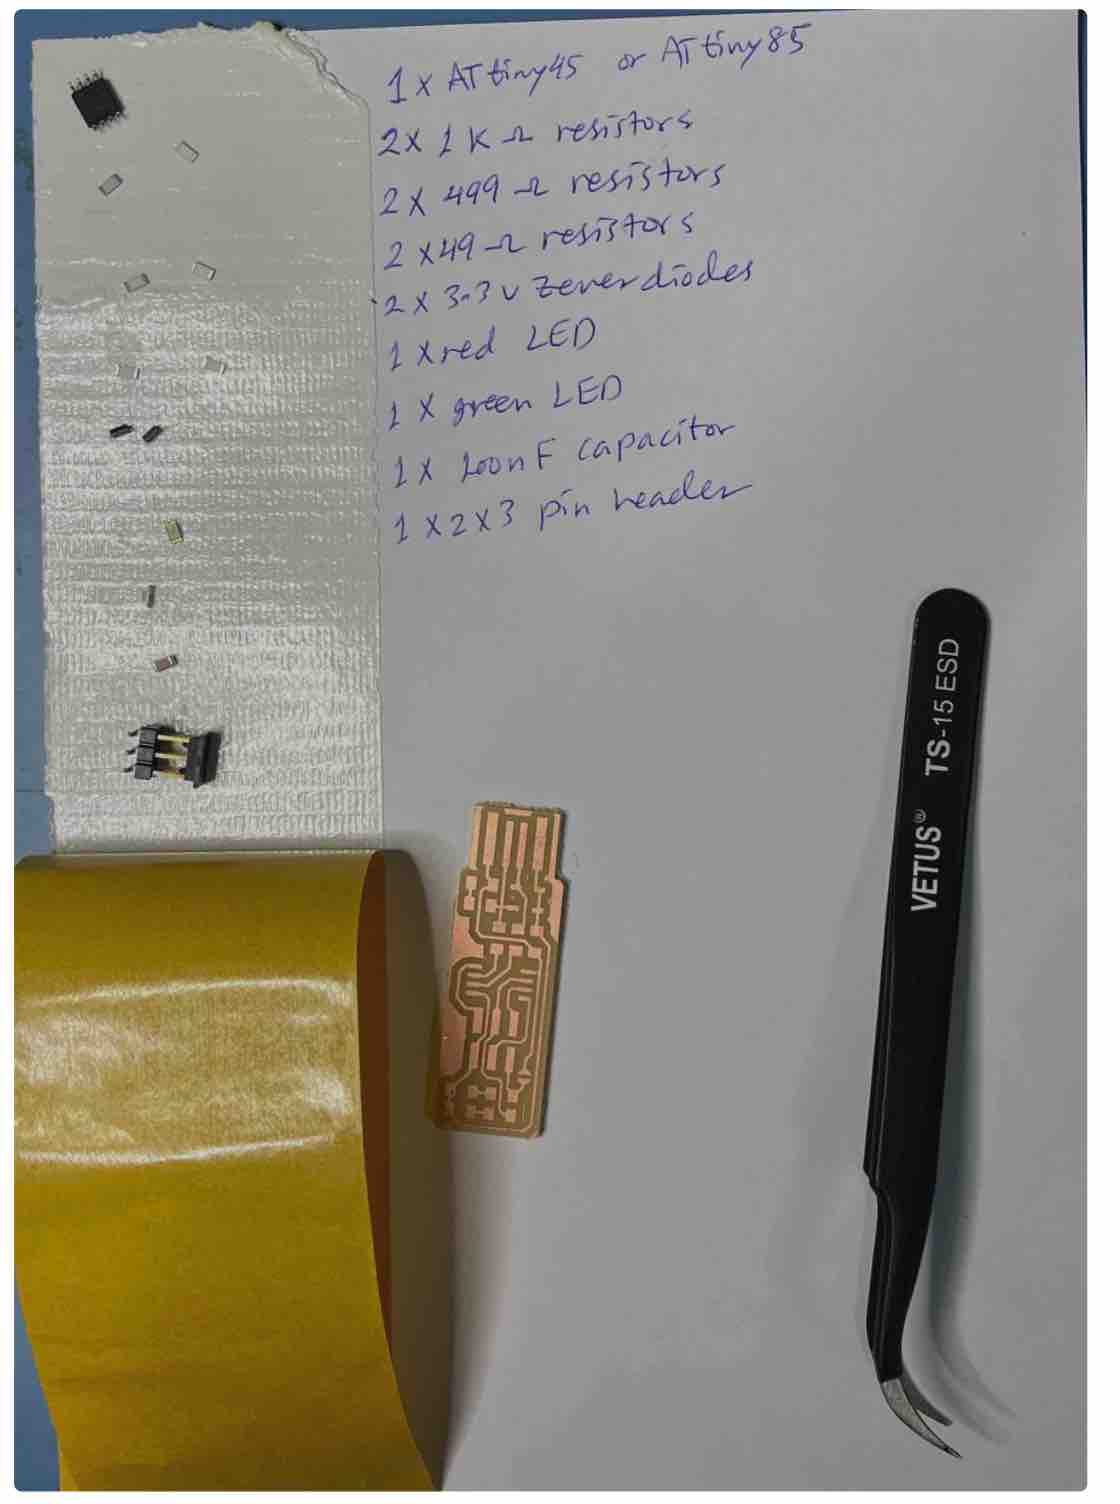 1 x ATtiny45 or ATtiny85
2 x 1K Ω resistors
2 x 499 Ω resistors
2 x 49 Ω resistors
2 x 3.3 v Zener diodes
1 x red LED
1 x green LED
1 x 100nF capacitor
1 x 2 x 3 pin header
VETUS® TS-15 ESD